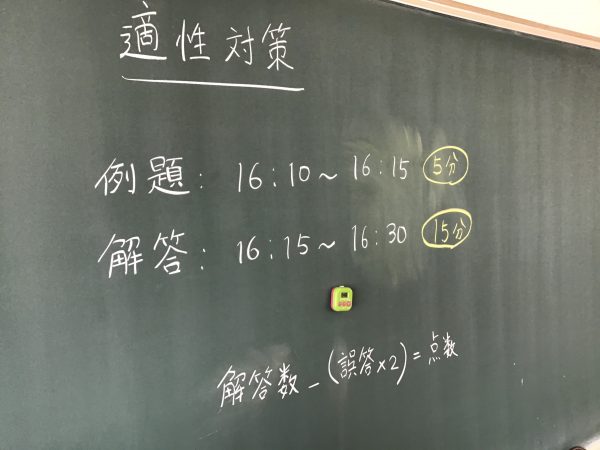 適性対策
例題: 16:10~16:15 5分
解答: 16:15~16:30 15分
解答数-(誤答×2)=点数